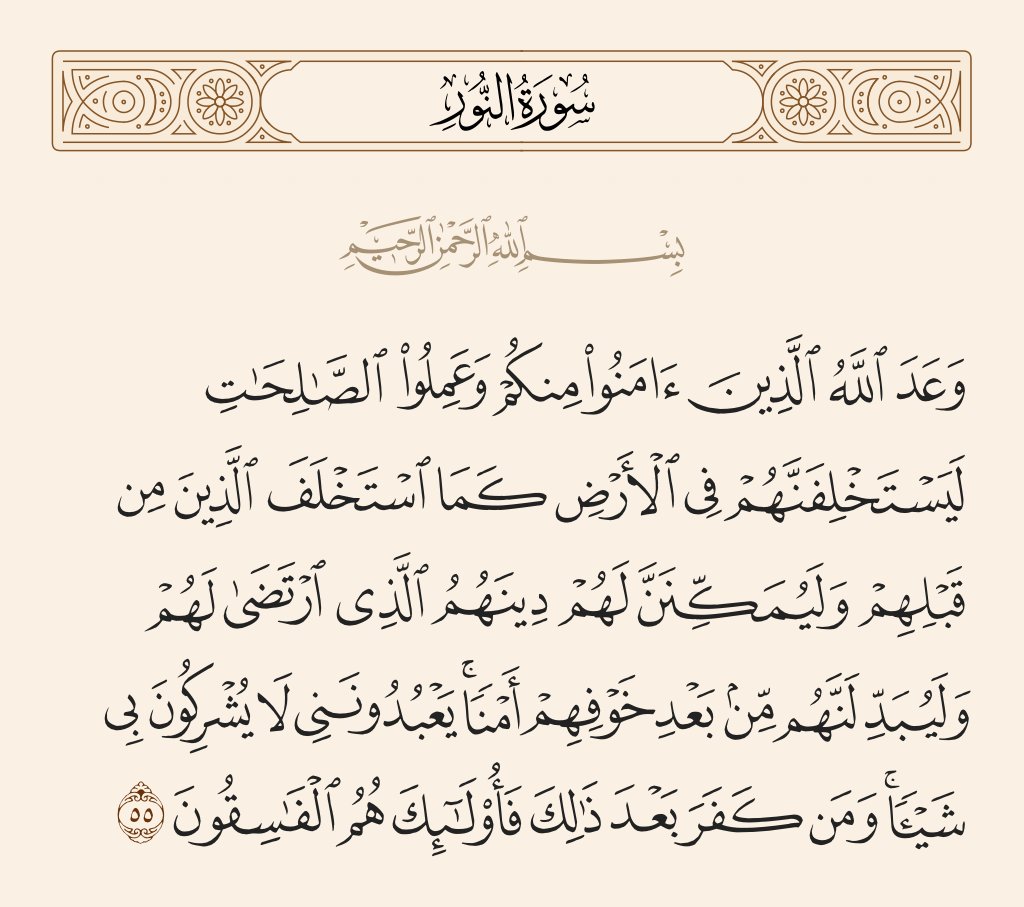 سُورَةُ النُّورِ
بِسْمِ ٱللَّهِ ٱلرَّحْمَٰنِ ٱلرَّحِيمِ
وَعَدَ ٱللَّهُ ٱلَّذِينَ ءَامَنُوا۟ مِنكُمْ وَعَمِلُوا۟ ٱلصَّـٰلِحَـٰتِ
لَيَسْتَخْلِفَنَّهُمْ فِى ٱلْأَرْضِ كَمَا ٱسْتَخْلَفَ ٱلَّذِينَ مِن
قَبْلِهِمْ وَلَيُمَكِّنَنَّ لَهُمْ دِينَهُمُ ٱلَّذِى ٱرْتَضَىٰ لَهُمْ
وَلَيُبَدِّلَنَّهُم مِّنۢ بَعْدِ خَوْفِهِمْ أَمْنًا ۚ يَعْبُدُونَنِى لَا يُشْرِكُونَ بِى
شَيْـًٔا ۚ وَمَن كَفَرَ بَعْدَ ذَٰلِكَ فَأُو۟لَـٰٓئِكَ هُمُ ٱلْفَـٰسِقُونَ ٥٥